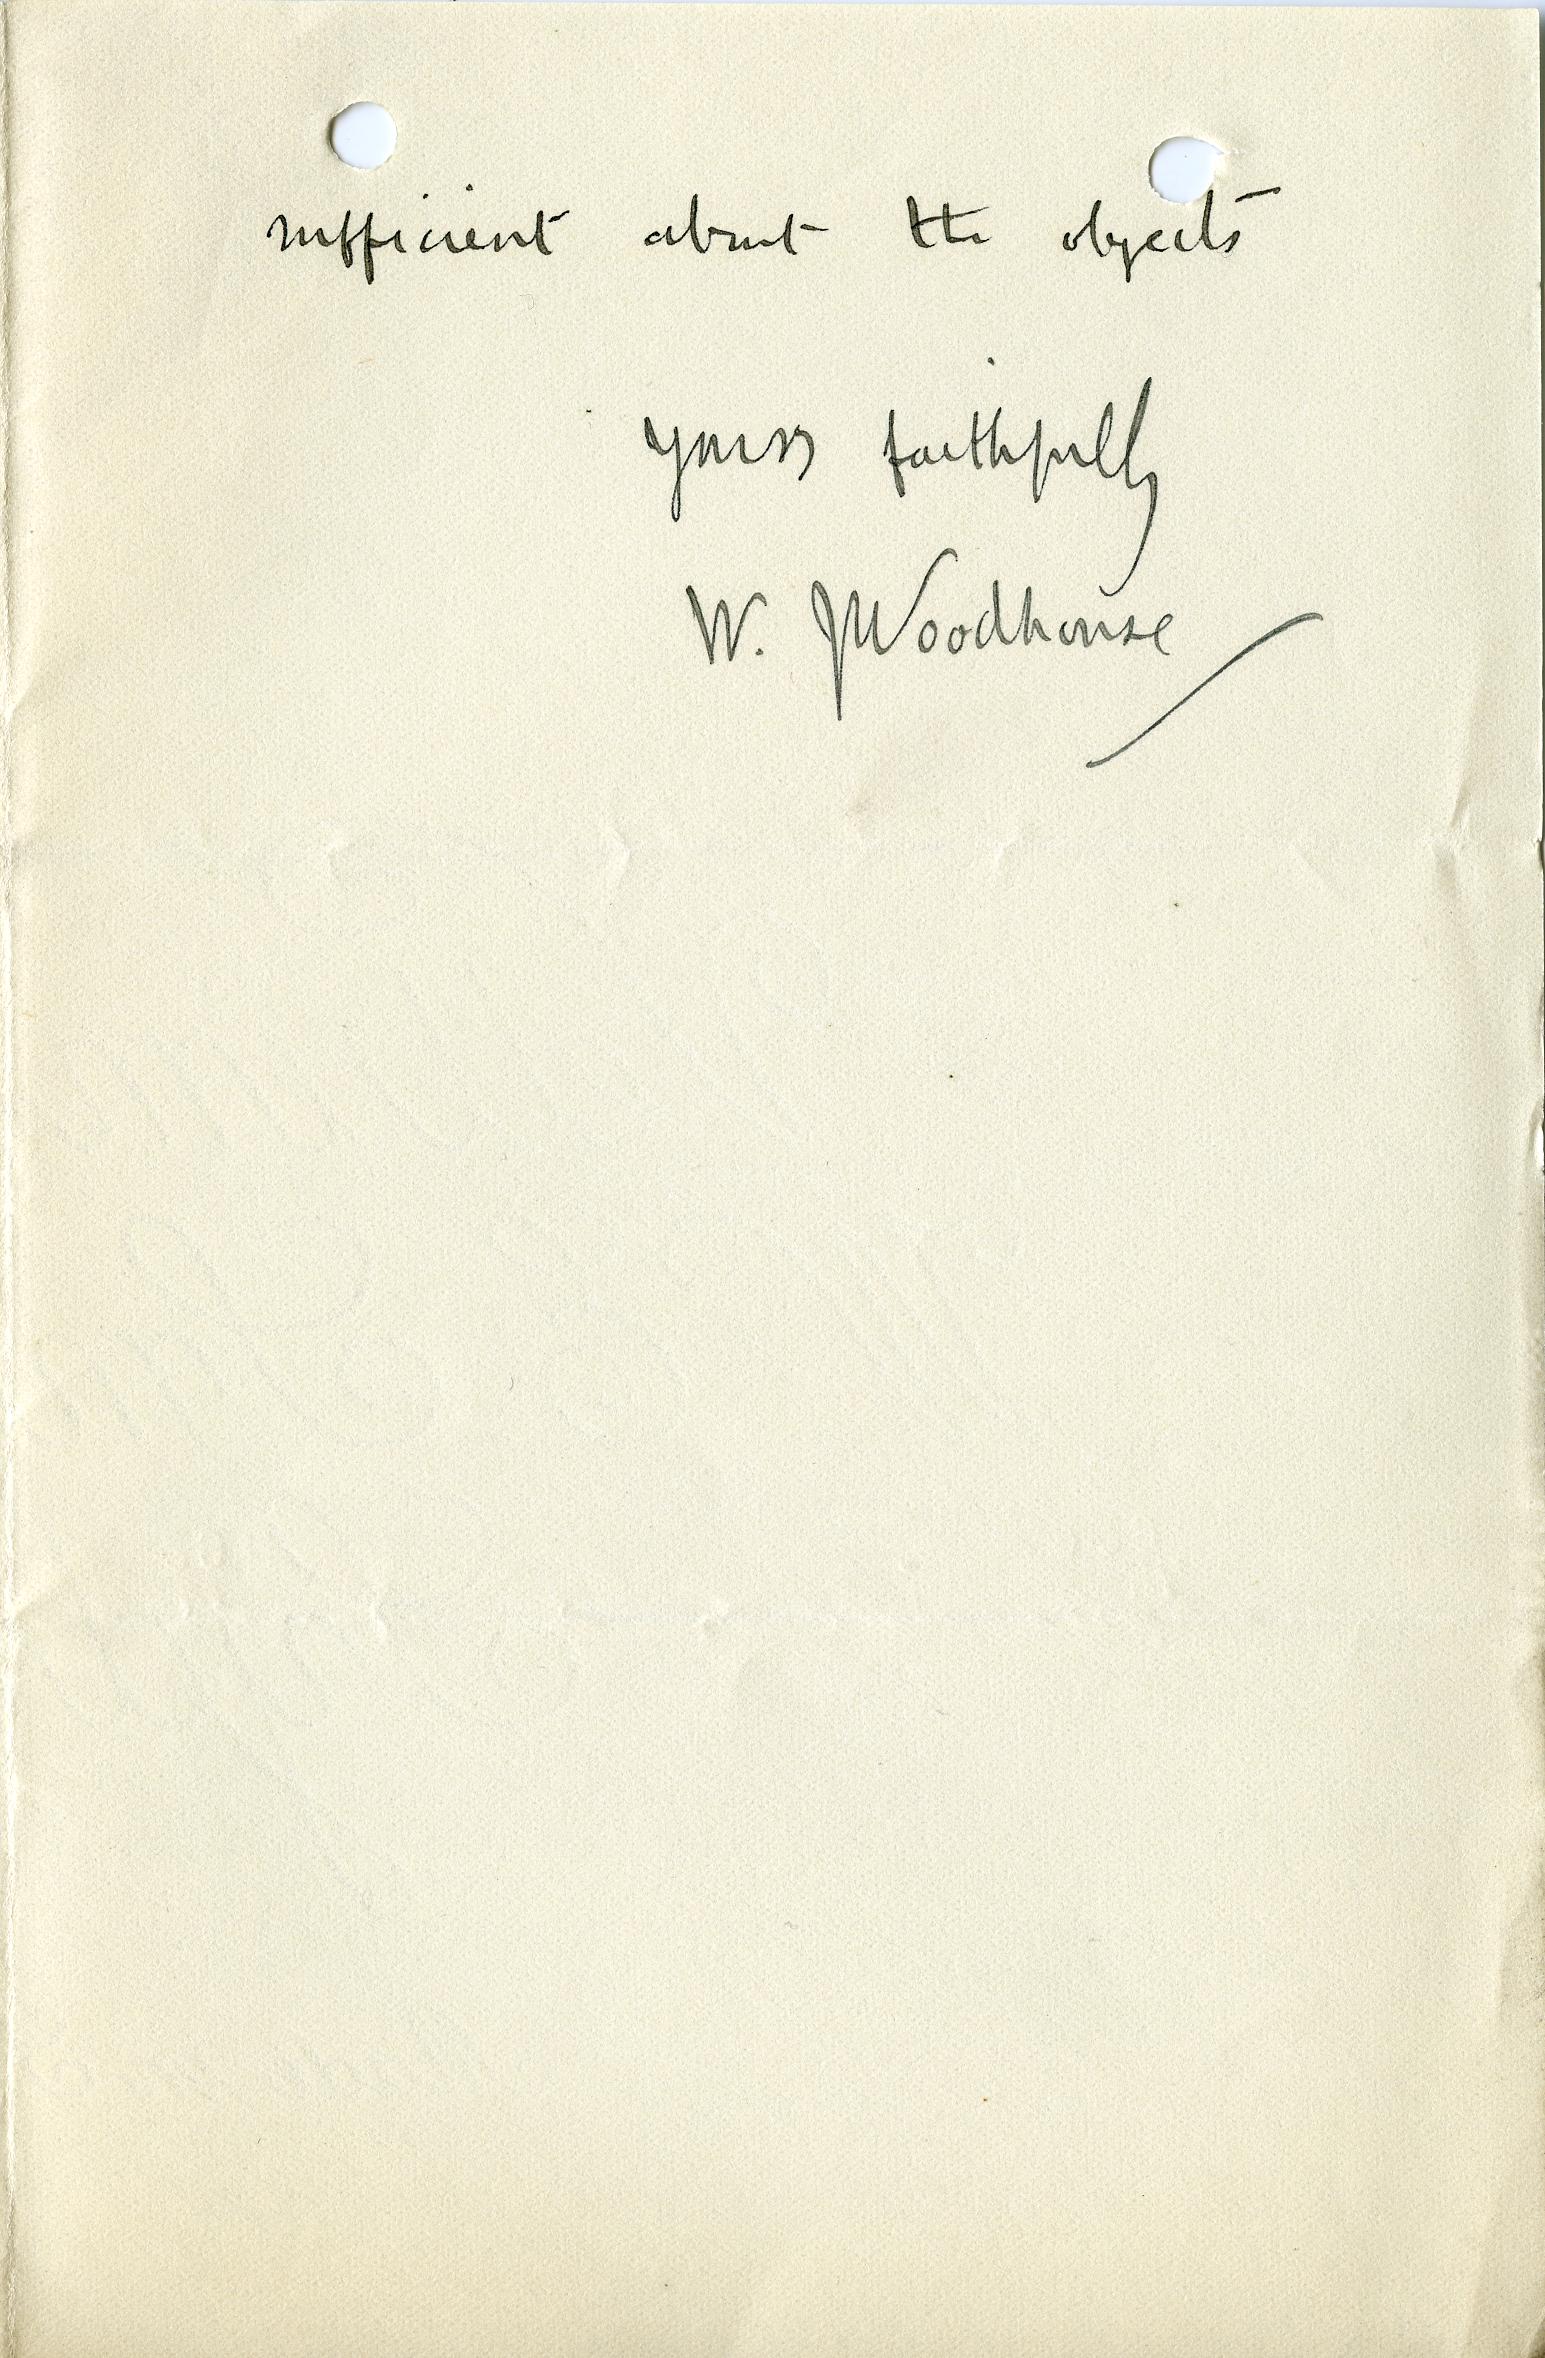 sufficient about the objects
Yours faithfully
W. J Woodhouse